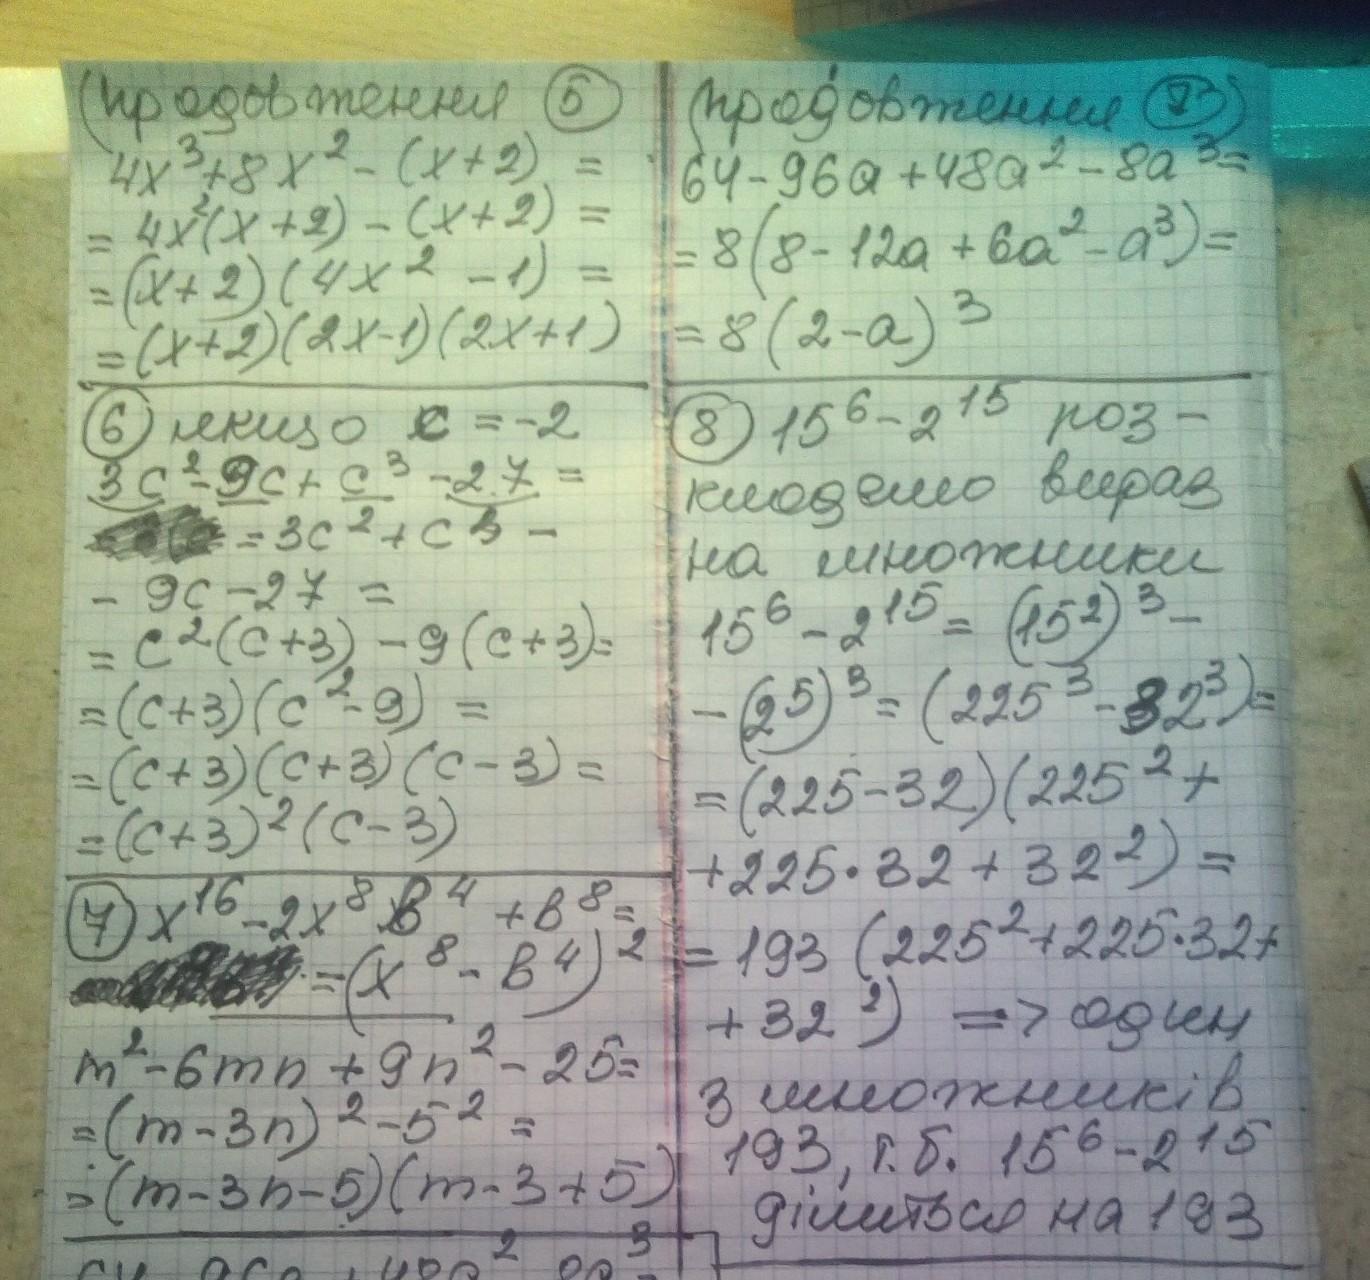 (продовження 5
4x³+8x²-(x+2) =
= 4x²(x+2)-(x+2) =
=(x+2)(4x² -1) =
=(x+2)(2x-1)(2x+1)
6) якщо c = -2
3c²-9c+c³-27 =
=3c²+c³ -
- 9c-27 =
= c²(c+3)-9(c+3)=
=(c+3)(c²-9) =
=(c+3)(c+3)(c-3) =
=(c+3)²(c-3)
7) x¹⁶-2x⁸b⁴ +b⁸=
=(x⁸-b⁴)²
m²-6mn+9n²-25=
=(m-3n)²-5² =
=(m-3n-5)(m-3+5)
(продовження 7)
64-96a+48a²-8a³=
=8(8-12a+6a²-a³)=
=8(2-a)³
8) 15⁶-2¹⁵ роз-
кладемо вираз
на множники
15⁶-2¹⁵= (15²)³-
-(2⁵)³=(225³-32³)=
=(225-32)(225²+
+225·32+32²) =
=193 (225²+225·32+
+32²) => один
з множників
193, т.б. 15⁶-2¹⁵
ділиться на 193